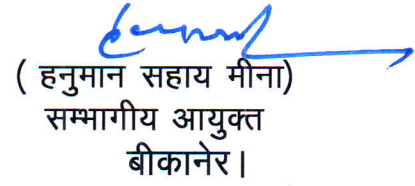 ( हनुमान सहाय मीना)
सम्भागीय आयुक्त
बीकानेर।